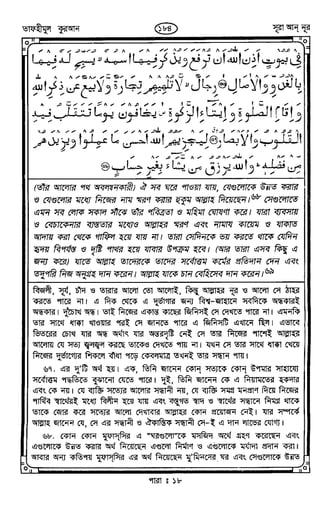 তাফহীমুল কুরআন
১৮৪
সূরা আন্ নূর
فِي بُيُوتٍ أَذِنَ اللهُ أَنْ تُرْفَعَ وَيُذْكَرَ فِيهَا اسْمُهُ يُسَبِّحُ لَهُ فِيهَا
بِالْغُدُوِّ وَالْآصَالِ ۝ رِجَالٌ لَّا تُلْهِيهِمْ تِجَارَةٌ وَّلَا بَيْعٌ عَنْ ذِكْرِ اللهِ
وَإِقَامِ الصَّلٰوةِ وَإِيتَاءِ الزَّكٰوةِ يَخَافُونَ يَوْمًا تَتَقَلَّبُ فِيهِ
الْقُلُوبُ وَالْأَبْصَارُ ۝ لِيَجْزِيَهُمُ اللهُ أَحْسَنَ مَا عَمِلُوا وَيَزِيدَهُمْ
مِّنْ فَضْلِهِ وَاللهُ يَرْزُقُ مَنْ يَّشَاءُ بِغَيْرِ حِسَابٍ ۝
(তাঁর আলোর পথ অবলম্বনকারী) ঐ সব ঘরে পাওয়া যায়, যেগুলোকে উন্নত করার
ও যেগুলোর মধ্যে নিজের নাম স্মরণ করার হুকুম আল্লাহ দিয়েছেন।৬৮ সেগুলোতে
এমন সব লোক সকাল সাঁঝে তাঁর পবিত্রতা ও মহিমা ঘোষণা করে। যারা ব্যবসায়
ও বেচাকেনার ব্যস্ততার মধ্যেও আল্লাহর স্মরণ এবং নামায কায়েম ও যাকাত
আদায় করা থেকে গাফিল হয়ে যায় না। তারা সেদিনকে ভয় করতে থাকে যেদিন
হৃদয় বিপর্যস্ত ও দৃষ্টি পাথর হয়ে যাবার উপক্রম হবে। (আর তারা এসব কিছু এ
জন্য করে) যাতে আল্লাহ তাদেরকে তাদের সর্বোত্তম কর্মের প্রতিদান দেন এবং
তদুপরি নিজ অনুগ্রহ দান করেন। আল্লাহ যাকে চান বেহিসেব দান করেন।৬৯
বিজলী, সূর্য, চাঁদ ও তারার আলো তো আলোই, কিন্তু আল্লাহর নূর ও আলো সে ঠাহর
করতে পারে না। এ দিক থেকে এ দুর্ভাগার জন্য বিশ্ব-জাহানে সবদিকে অন্ধকারই
অন্ধকার। দু'চোখ অন্ধ। তাই নিজের একান্ত কাছের জিনিসই সে দেখতে পারে না। এমনকি
তার সাথে ধাক্কা খাওয়ার পরই সে জানতে পারে এ জিনিসটি এখানে ছিল। এভাবে
ভিতরের চোখ যার অন্ধ অর্থাৎ যার অন্তরদৃষ্টি নেই সে তার নিজের পাশেই আল্লাহর
আলোয় যে সত্য জ্বলজ্বল করছে তাকেও দেখতে পায় না। যখন সে তার সাথে ধাক্কা খেয়ে
নিজের দুর্ভাগ্যের শিকলে বাঁধা পড়ে কেবলমাত্র তখনই তার সন্ধান পায়।
৬৭. এর দু'টি অর্থ হয়। এক, তিনি জানেন কোন্ সত্যকে কোন্ উপমার সাহায্যে
সর্বোত্তম পদ্ধতিতে বুঝানো যেতে পারে। দুই, তিনি জানেন কে এ নিয়ামতের হকদার
এবং কে নয়। যে ব্যক্তি সত্যের আলোর সন্ধানী নয়, যে ব্যক্তি সমগ্র মনপ্রাণ দিয়ে নিজের
পার্থিব স্বার্থেরই মধ্যে বিলীন হয়ে যায় এবং বস্তুগত স্বাদ ও স্বার্থের সন্ধানে নিমগ্ন থাকে
তাকে জোর করে সত্যের আলো দেখাবার আল্লাহর কোন প্রয়োজন নেই। যার সম্পর্কে
আল্লাহ জানেন যে, সে এর সন্ধানী ও ঐকান্তিক সন্ধানী সে-ই এ দান লাভের যোগ্য।
৬৮. কোন কোন মুফাস্সির এ "ঘরগুলো"কে মসজিদ অর্থে গ্রহণ করেছেন এবং
এগুলোকে উন্নত করার অর্থ নিয়েছেন এগুলো নির্মাণ ও এগুলোকে মর্যাদা প্রদান করা।
আবার অন্য কতিপয় মুফাস্সির এর অর্থ নিয়েছেন মু'মিনদের ঘর এবং সেগুলোকে উন্নত
পারা : ১৮